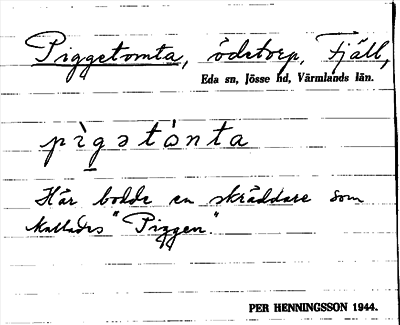 Piggetomta, ödetorp, Fjäll,
Eda sn, Jösse hd, Värmlands län.
pìgətònta
Här bodde en skräddare som
kallades "Piggen".
PER HENNINGSSON 1944.